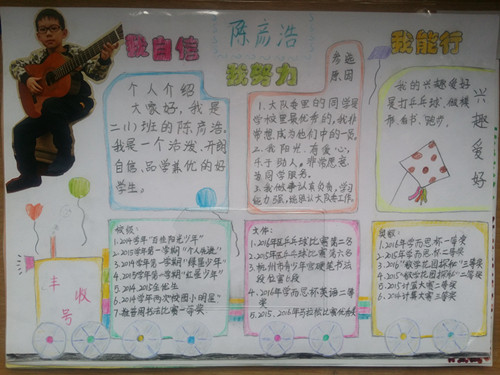 我自信
陈彦浩
我努力
我能行
竞选
原因
个人介绍
大家好，我是
二(1)班的陈彦浩。
我是一个活泼、开朗
自信、品学兼优的好
学生。
1.大队委里的同学是
学校里最优秀的，我非
常想成为他们中的一员。
2.我阳光、有爱心，
乐于助人，非常愿意
为同学服务。
3.我做事认真负责，学习
能力强，
我的兴趣爱好
是打乒乓球、做模
形、看书、跑步。
兴趣爱好
丰收号
校级：
1.2014学年"百佳阳光少年"
2.2015学年第一学期
3.2014学年第一学期"绿星少年"
4.2015学年第一学期"红星少年"
5.2014、2015金优生
6.2014学年两次校园小明星
7.数普周书法比赛一等奖
文体：
1.2016年区乒乓球比赛第二名
2.2015年区乒乓球比赛第六名
3.杭州市青少年宫硬笔书法
段位赛6段
4.2016年学而思杯英语二等
奖
5.2015、2016年马拉松比赛
奥数：
1.2016年学而思杯一等奖
2.2015年学而思杯二等奖
3.2016"数学花园探秘"三等奖
4.2015"数学花园探秘"二等奖
5.2015计算大赛二等奖
6.2014计算大赛三等奖